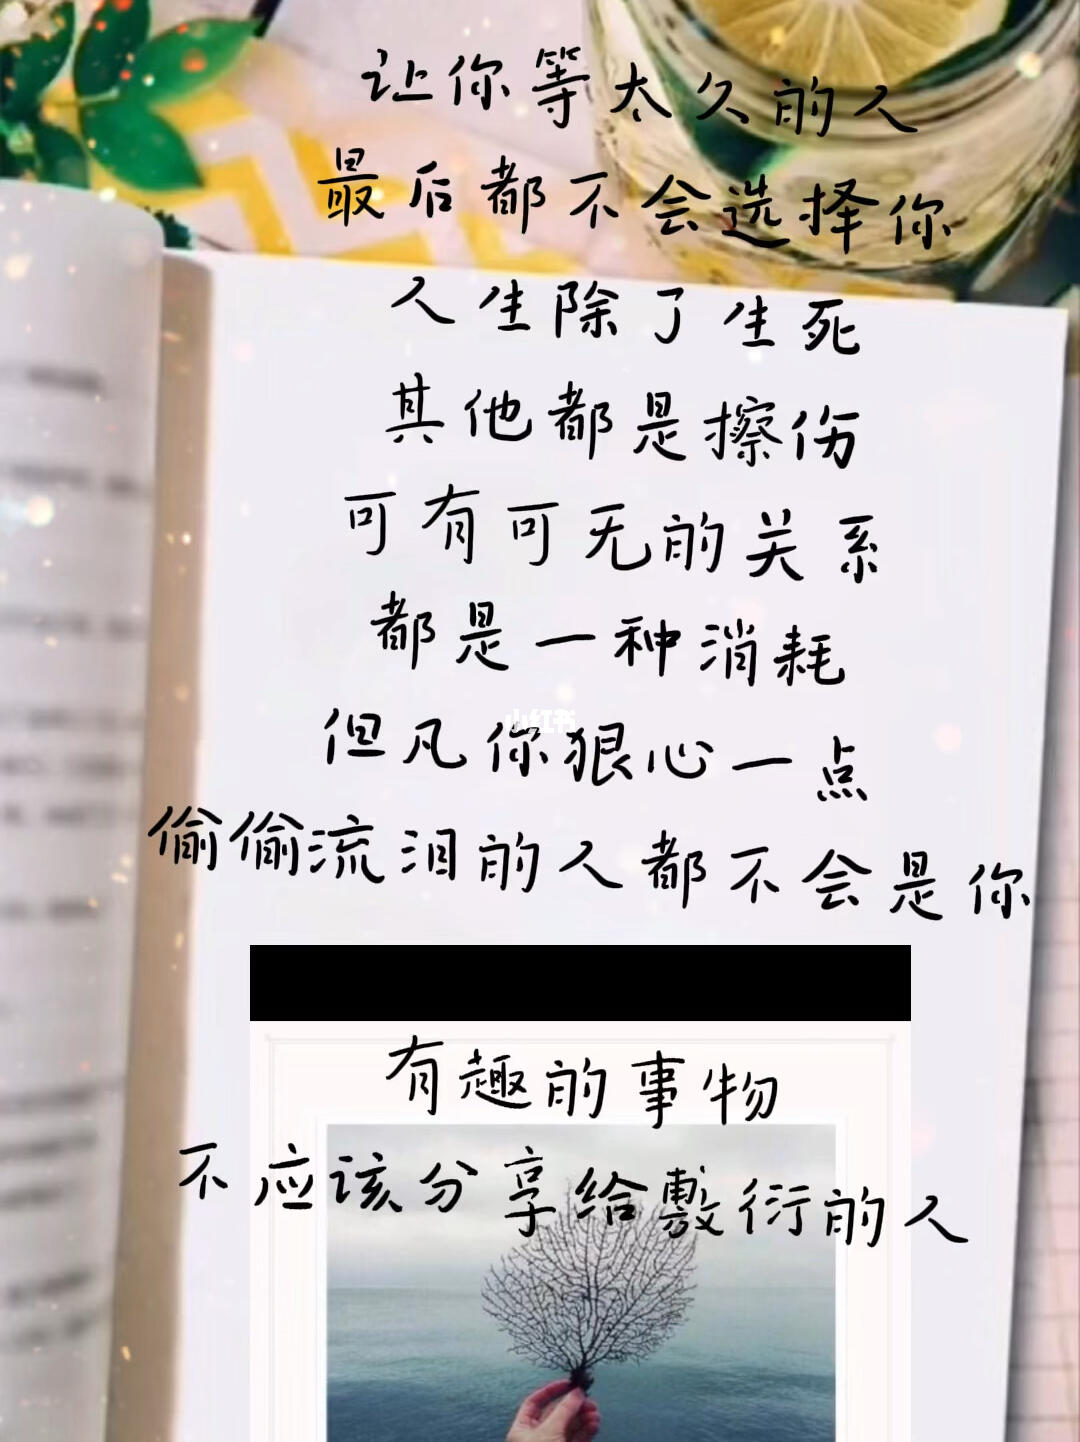 让你等太久的人
最后都不会选择你
人生除了生死
其他都是擦伤
可有可无的关系
都是一种消耗
小红书
但凡你狠心一点
偷偷流泪的人都不会是你
有趣的事物
不应该分享给敷衍的人